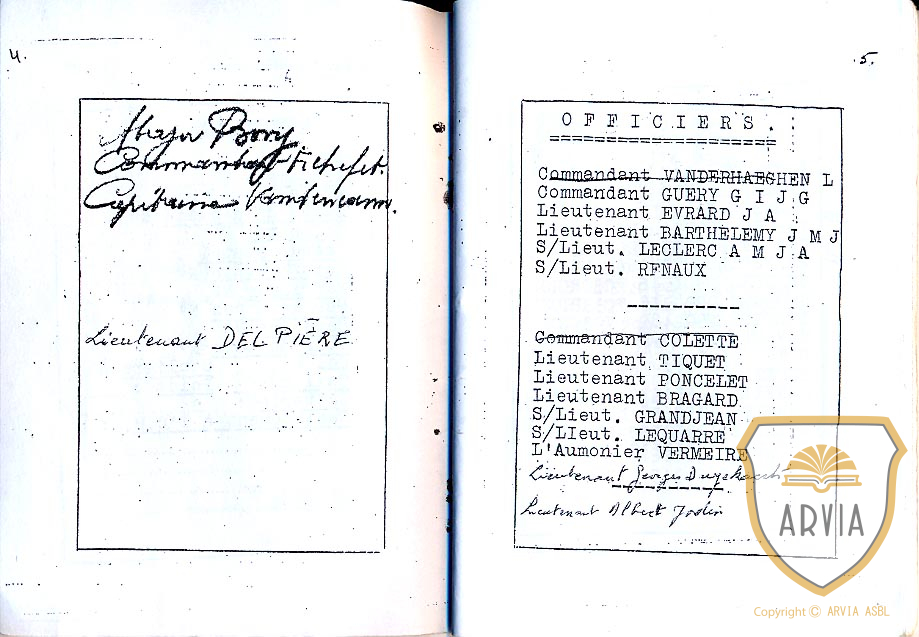 4.
Major Bovy
Commandant Fichefet.
Capitaine
Lieutenant DELPIÈRE
5.
OFFICIERS.
Commandant VANDERHAEGHEN L
Commandant GUERY G I J G
Lieutenant EVRARD J A
Lieutenant BARTHELEMY J M J
S/Lieut. LECLERC A M J A
S/Lieut. RENAUX
Commandant COLETTE
Lieutenant TIQUET
Lieutenant PONCELET
Lieutenant BRAGARD
S/Lieut. GRANDJEAN
S/LIeut. LEQUARRE
L'Aumonier VERMEIRE
Lieutenant Georges
Lieutenant Albert Jodin
ARVIA
Copyright © ARVIA ASBL